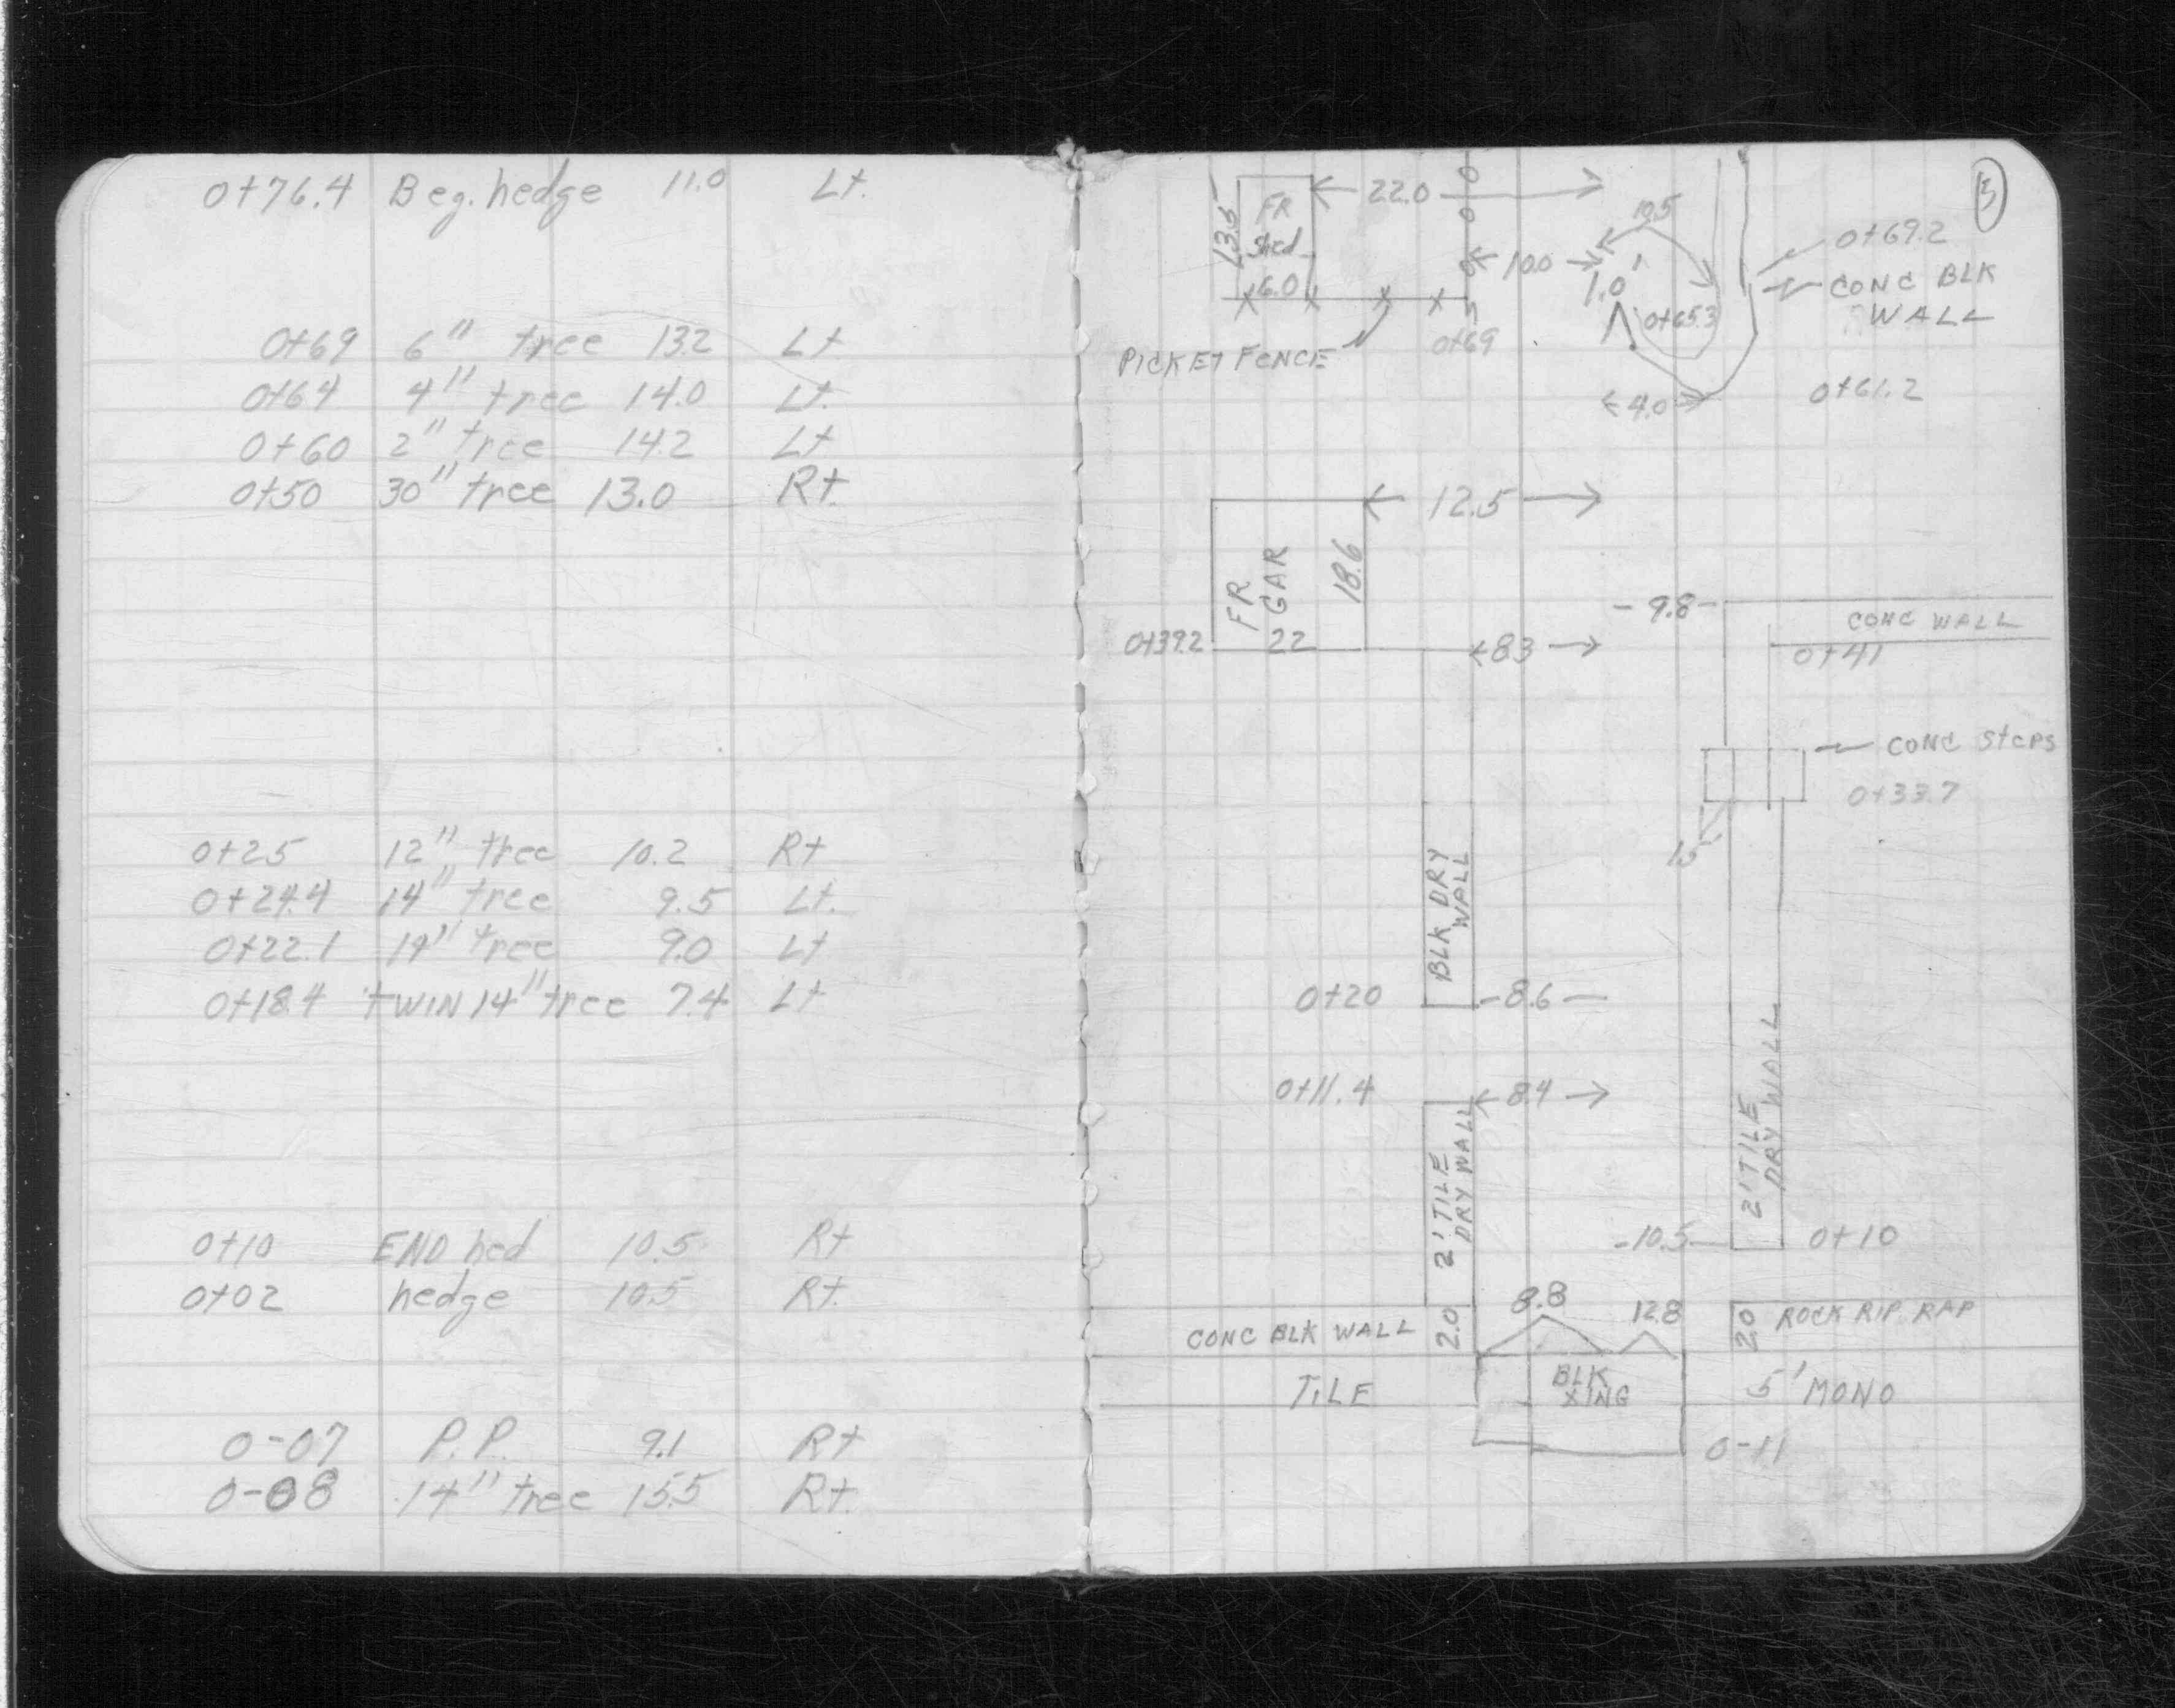 0+76.4 Beg. hedge 11.0 Lt.
0+69 6" tree 13.2 Lt
0+64 4" tree 14.0 Lt.
0+60 2" tree 14.2 Lt
0+50 30" tree 13.0 Rt.
0+25 12" tree 10.2 Rt
0+24.4 14" tree 9.5 Lt.
0+22.1 14" tree 9.0 Lt
0+18.4 tWIN 14" tree 7.4 Lt
0+10 END hed 10.5 Rt
0+02 hedge 10.5 Rt.
0-07 P.P. 9.1 Rt
0-08 14" tree 15.5 Rt.
5
13.5
FR
Shed
6.0
22.0
10.5
0+69.2
10.0
1.0'
CONC BLK
WALL
0+65.3
0+69
PICKET FENCE
4.0
0+61.2
12.5
FR
GAR
18.6
22
0+39.2
8.3
9.8
CONC WALL
0+41
CONC Steps
0+33.7
1.5
BLK DRY
WALL
0+20
8.6
0+11.4
8.4
2' TILE
DRY WALL
2' TILE
DRY WALL
10.5
0+10
8.8
12.8
CONC BLK WALL
2.0
2.0
ROCK RIP RAP
TILE
BLK
XING
5' MONO
0-11